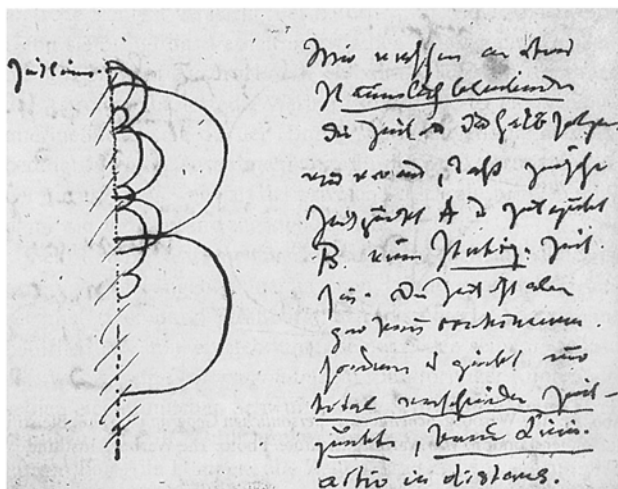 Zeitlinie.
Wir messen an etwas
Räumlich bleibendem
die Zeit u deshalb setzen
wir voraus, daß zwischen
Zeitpunkt A u Zeitpunkt
B eine stetige Zeit
sei. Die Zeit ist aber
gar kein continuum,
sondern es giebt nur
total verschiedene Zeit-
punkte, keine Linie.
actio in distans.